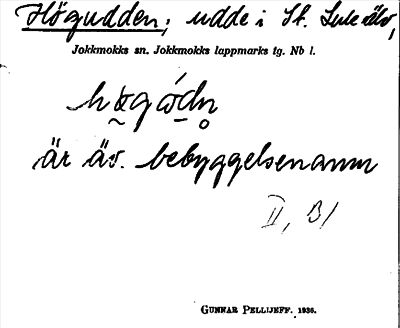 Högudden; udde i St. Lule älv,
Jokkmokks sn. Jokkmokks lappmarks tg. Nb l.
är äv. bebyggelsenamn
II, B/
GUNNAR PELLIJEFF. 1936.